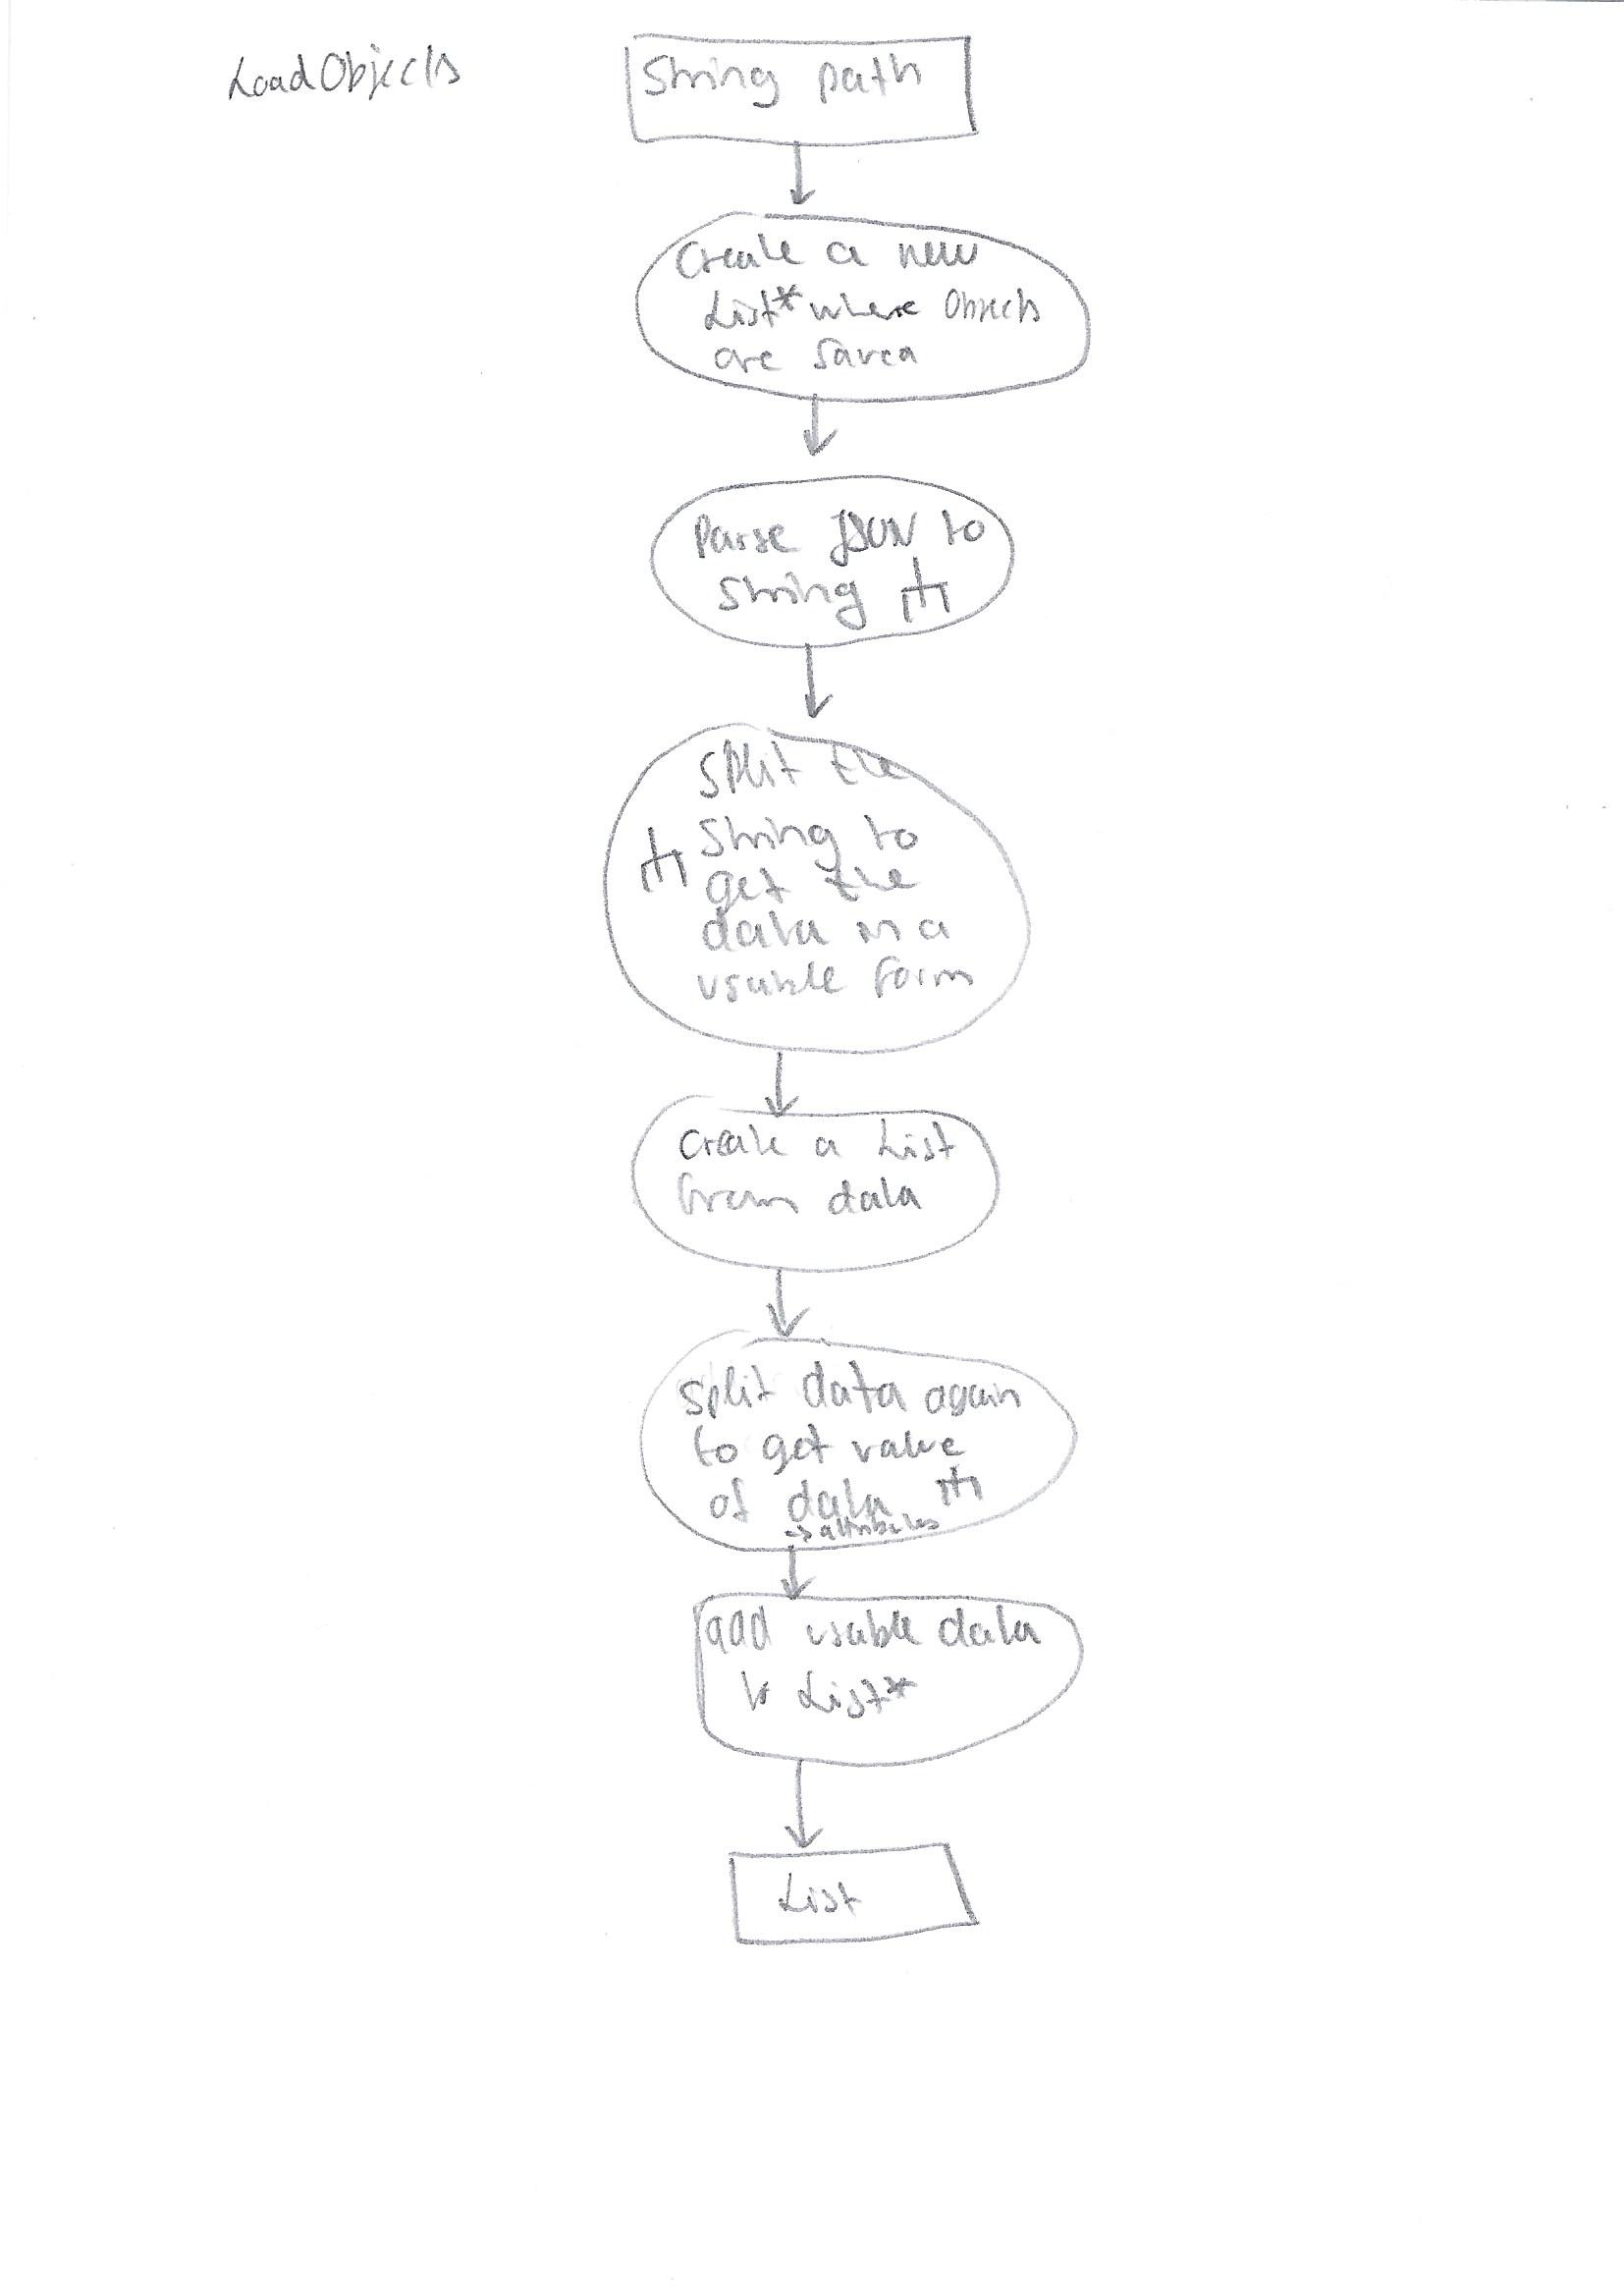 LoadObjects
String path
Create a new
List* where Objects
are saved
Parse JSON to
String
Split the
String to
get the
data in a
usable form
Create a List
from data
split data again
to get value
of data
→ attributes
add usable data
to List*
List